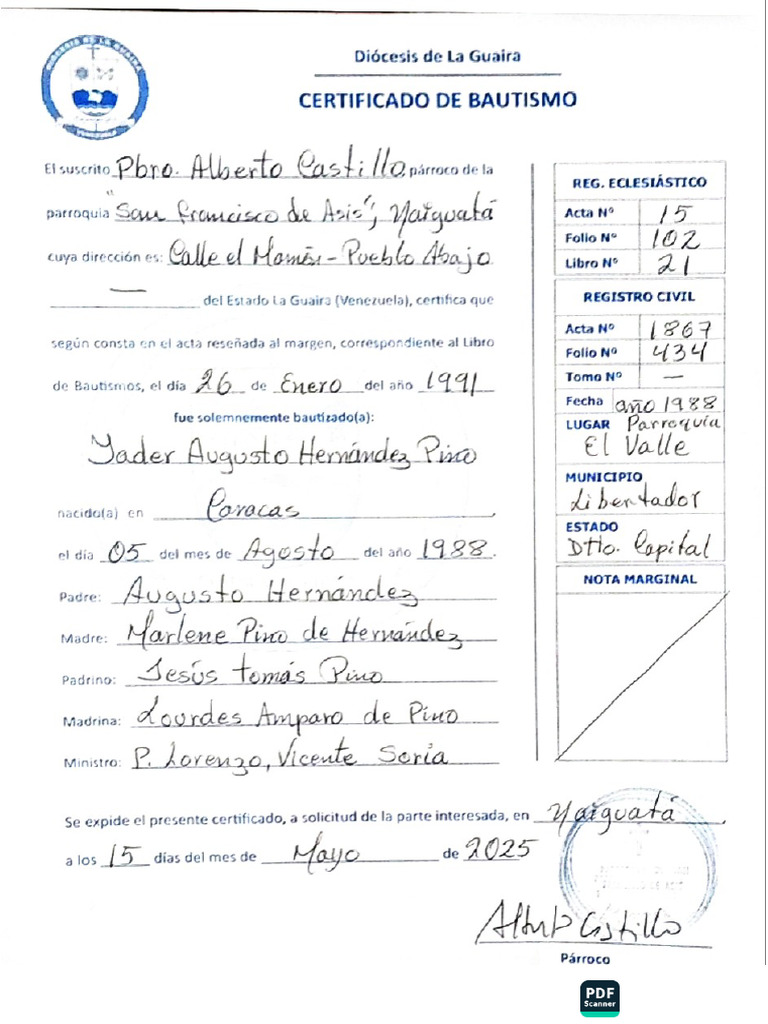 DIÓCESIS DE LA GUAIRA
VENEZUELA
Diócesis de La Guaira
CERTIFICADO DE BAUTISMO
El suscrito Pbro. Alberto Castillo, párroco de la
parroquia "San Francisco de Asis", Naiguatá
cuya dirección es: Calle el Mamón - Pueblo Abajo
— del Estado La Guaira (Venezuela), certifica que
según consta en el acta reseñada al margen, correspondiente al Libro
de Bautismos, el día 26 de Enero del año 1991
fue solemnemente bautizado(a):
Yader Augusto Hernández Pino
nacido(a) en Caracas
el día 05 del mes de Agosto del año 1988.
Padre: Augusto Hernández
Madre: Marlene Pino de Hernández
Padrino: Jesús tomás Pino
Madrina: Lourdes Amparo de Pino
Ministro: P. Lorenzo, Vicente Soria
REG. ECLESIÁSTICO
Acta Nº 15
Folio Nº 102
Libro Nº 21
REGISTRO CIVIL
Acta Nº 1867
Folio Nº 434
Tomo Nº —
Fecha año 1988
LUGAR Parroquia
El Valle
MUNICIPIO
Libertador
ESTADO
Dtto. Capital
NOTA MARGINAL
Se expide el presente certificado, a solicitud de la parte interesada, en Naiguatá,
a los 15 días del mes de Mayo de 2025
Alberto Castillo
Párroco
PDF
Scanner